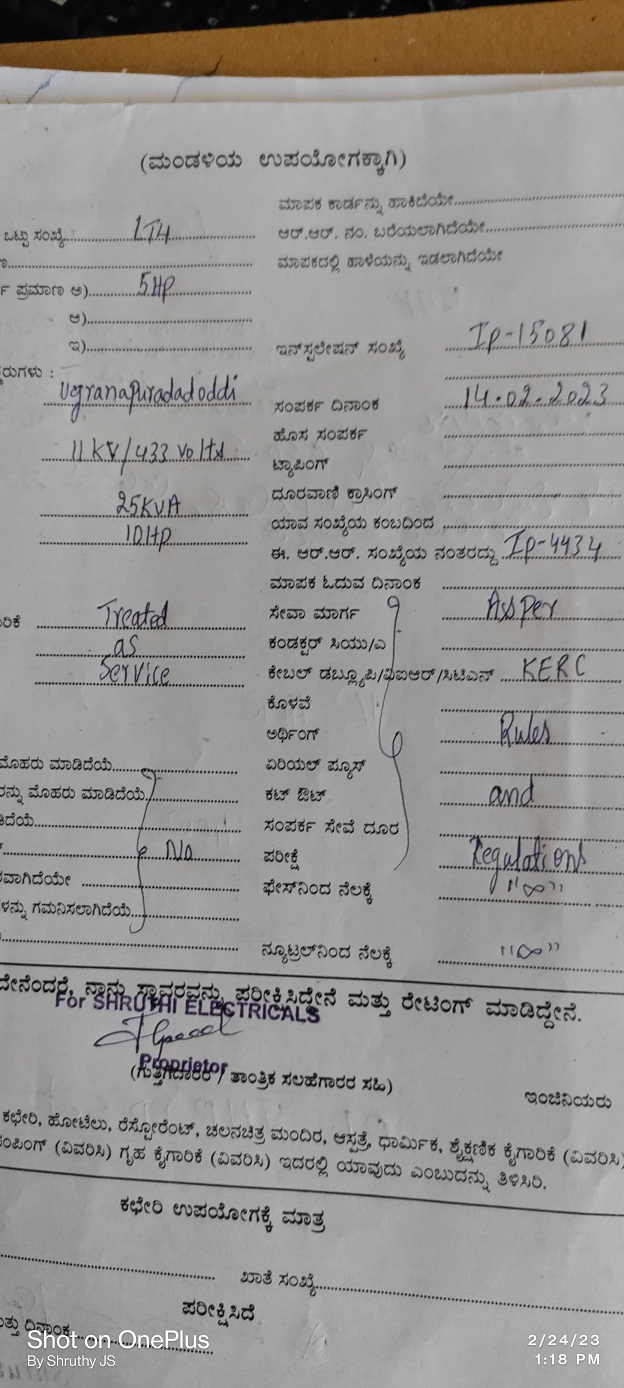 (ಮಂಡಳಿಯ ಉಪಯೋಗಕ್ಕಾಗಿ)
ಮಾಪಕ ಕಾರ್ಡನ್ನು ಹಾಕಿದೆಯೇ
ಒಟ್ಟು ಸಂಖ್ಯೆ LT4 ಆರ್.ಆರ್. ನಂ. ಬರೆಯಲಾಗಿದೆಯೇ
ಮಾಪಕದಲ್ಲಿ ಹಾಳೆಯನ್ನು ಇಡಲಾಗಿದೆಯೇ
ಪ್ರಮಾಣ ಅ) 5HP
ಆ)
ಇ) ಇನ್ಸ್ಟಲೇಷನ್ ಸಂಖ್ಯೆ Ip-15081
Ugranapuradadoddi ಸಂಪರ್ಕ ದಿನಾಂಕ 14.02.2023
ಹೊಸ ಸಂಪರ್ಕ
11 KV/433 Volts ಟ್ಯಾಪಿಂಗ್
25KVA ದೂರವಾಣಿ ಕ್ರಾಸಿಂಗ್
10Hp ಯಾವ ಸಂಖ್ಯೆಯ ಕಂಬದಿಂದ
ಈ. ಆರ್.ಆರ್. ಸಂಖ್ಯೆಯ ನಂತರದ್ದು Ip-4434
ಮಾಪಕ ಓದುವ ದಿನಾಂಕ
Treated ಸೇವಾ ಮಾರ್ಗ As per
as ಕಂಡಕ್ಟರ್ ಸಿಯು/ಎ
Service ಕೇಬಲ್ ಡಬ್ಲ್ಯೂಪಿ/ವಿಐಆರ್/ಸಿಟಿಎಸ್ KERC
ಕೊಳವೆ
ಅರ್ಥಿಂಗ್ Rules
ಮೊಹರು ಮಾಡಿದೆಯೆ ಏರಿಯಲ್ ಫ್ಯೂಸ್
ಮೊಹರು ಮಾಡಿದೆಯೆ ಕಟ್ ಔಟ್ and
ಸಂಪರ್ಕ ಸೇವೆ ದೂರ
No ಪರೀಕ್ಷೆ Regulations
ಫೇಸ್‌ನಿಂದ ನೆಲಕ್ಕೆ "∞"
ಗಮನಿಸಲಾಗಿದೆಯೆ
ನ್ಯೂಟ್ರಲ್‌ನಿಂದ ನೆಲಕ್ಕೆ "∞"
ನಾನು ಸ್ಥಾವರವನ್ನು ಪರೀಕ್ಷಿಸಿದ್ದೇನೆ ಮತ್ತು ರೇಟಿಂಗ್ ಮಾಡಿದ್ದೇನೆ.
For SHRUTHI ELECTRICALS
Proprietor
(ಗುತ್ತಿಗೆದಾರರ / ತಾಂತ್ರಿಕ ಸಲಹೆಗಾರರ ಸಹಿ)
ಇಂಜಿನಿಯರು
ಕಛೇರಿ, ಹೋಟೆಲು, ರೆಸ್ಟೋರೆಂಟ್, ಚಲನಚಿತ್ರ ಮಂದಿರ, ಆಸ್ಪತ್ರೆ, ಧಾರ್ಮಿಕ, ಶೈಕ್ಷಣಿಕ ಕೈಗಾರಿಕೆ (ವಿವರಿಸಿ)
ಪಂಪಿಂಗ್ (ವಿವರಿಸಿ) ಗೃಹ ಕೈಗಾರಿಕೆ (ವಿವರಿಸಿ) ಇದರಲ್ಲಿ ಯಾವುದು ಎಂಬುದನ್ನು ತಿಳಿಸಿರಿ.
ಕಛೇರಿ ಉಪಯೋಗಕ್ಕೆ ಮಾತ್ರ
ಖಾತೆ ಸಂಖ್ಯೆ
ಪರೀಕ್ಷಿಸಿದೆ
ದಿನಾಂಕ
Shot on OnePlus
By Shruthy JS
2/24/23
1:18 PM